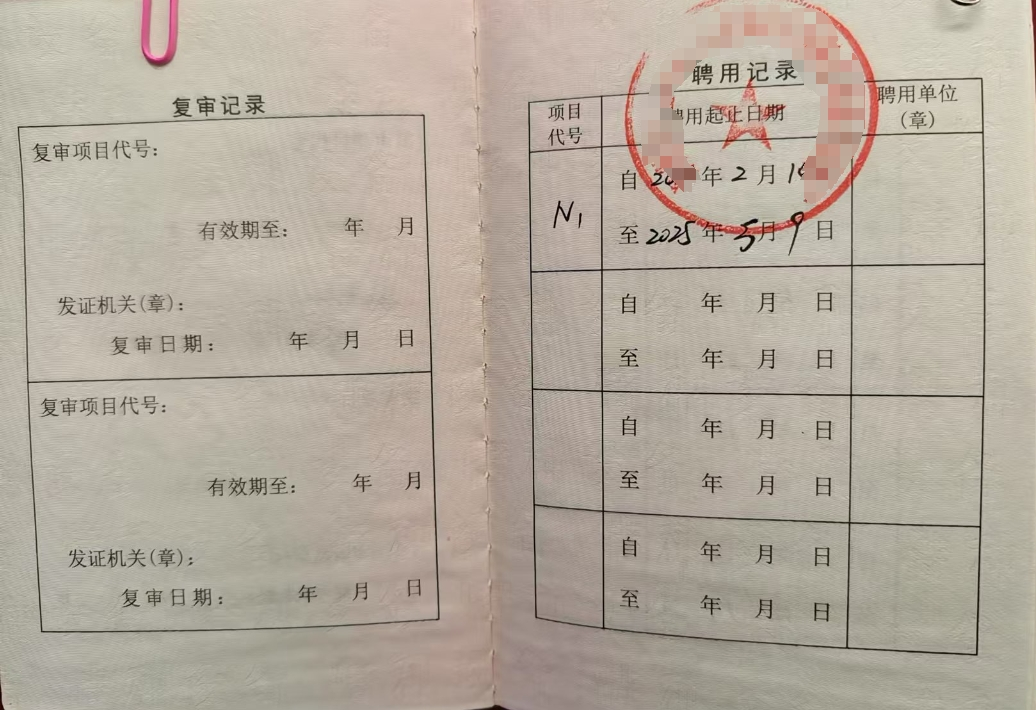 复审记录
复审项目代号:
有效期至: 年 月
发证机关(章):
复审日期: 年 月 日
复审项目代号:
有效期至: 年 月
发证机关(章):
复审日期: 年 月 日
聘用记录
项目代号 用起止日期 聘用单位(章)
N1
自 年 2 月
至 2025 年 5 月 9 日
自 年 月 日
至 年 月 日
自 年 月 日
至 年 月 日
自 年 月 日
至 年 月 日